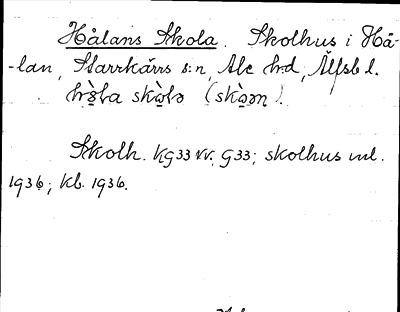 Hålans Skola. Skolhus i Hå-
-lan, Starrkärrs s:n, Ale h:d, Älfsb l.
Skolh. Kg33 NV. G33; skolhus enl.
1936; Kb. 1936.